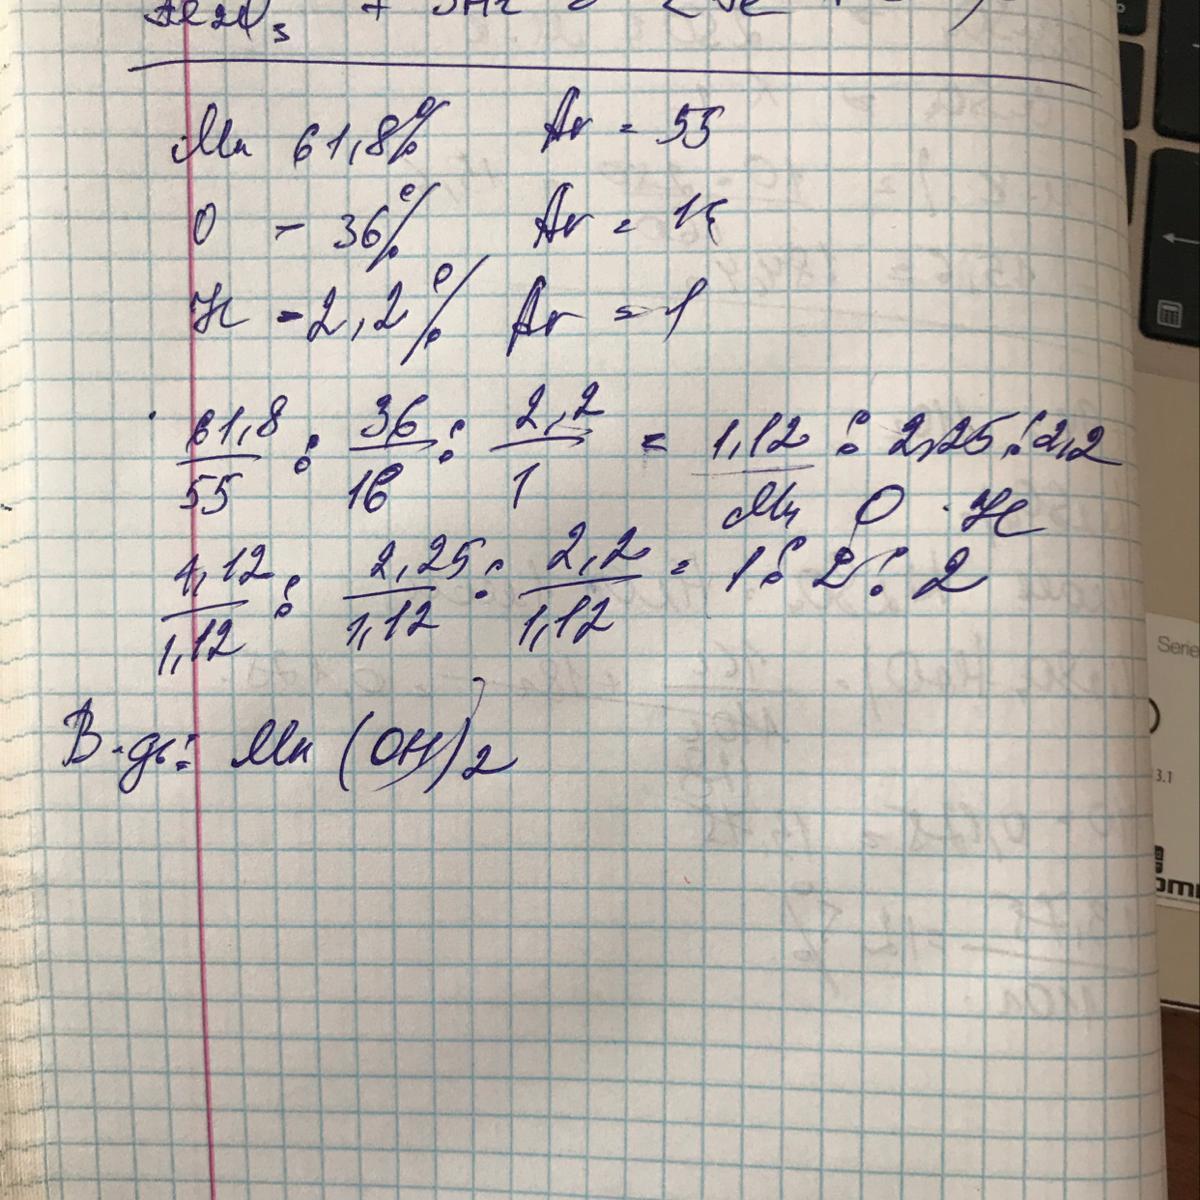 Mn 61,8% Ar = 55
O - 36% Ar = 16
H - 2,2% Ar = 1
61,8/55 : 36/16 : 2,2/1 = 1,12 : 2,25 : 2,2
Mn O H
1,12/1,12 : 2,25/1,12 : 2,2/1,12 = 1 : 2 : 2
В-дь: Mn (OH)2
Serie
3.1